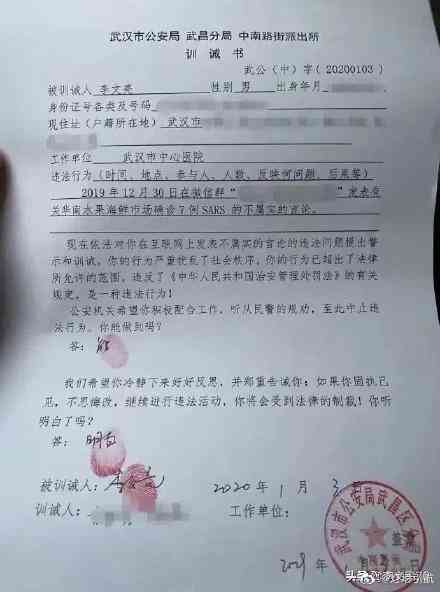 武汉市公安局 武昌分局 中南路街派出所
训诫书
武公(中)字(20200103)
被训诫人 李文亮 性别 男 出身年月
身份证号各类及号码
现住址(户籍所在地) 武汉市
工作单位 武汉市中心医院
违法行为(时间、地点、参与人、人数、反映何问题、后果等)
2019年12月30日在微信群“ ”发表有
关华南水果海鲜市场确诊7例SARS的不属实的言论。
现在依法对你在互联网上发表不属实的言论的违法问题提出警
示和训诫。你的行为严重扰乱了社会秩序。你的行为已超出了法律
所允许的范围,违反了《中华人民共和国治安管理处罚法》的有关
规定,是一种违法行为!
公安机关希望你积极配合工作,听从民警的规劝,至此中止违
法行为。你能做到吗?
答: 能
我们希望你冷静下来好好反思,并郑重告诫你:如果你固执己
见,不思悔改,继续进行违法活动,你将会受到法律的制裁!你听
明白了吗?
答: 明白
被训诫人: 李文亮 2020年1月3
训诫人: 工作单位:
武汉市公安局武昌区
头条